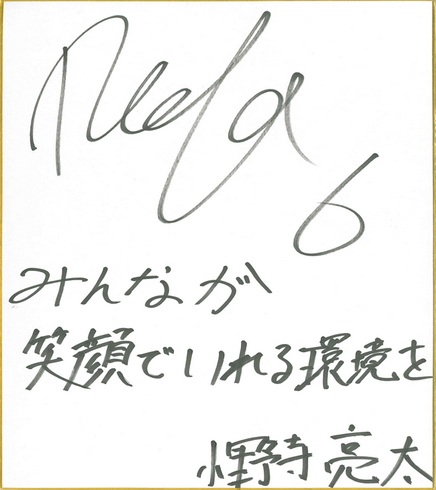 6
みんなが
笑顔でいれる環境を
小野寺 亮太